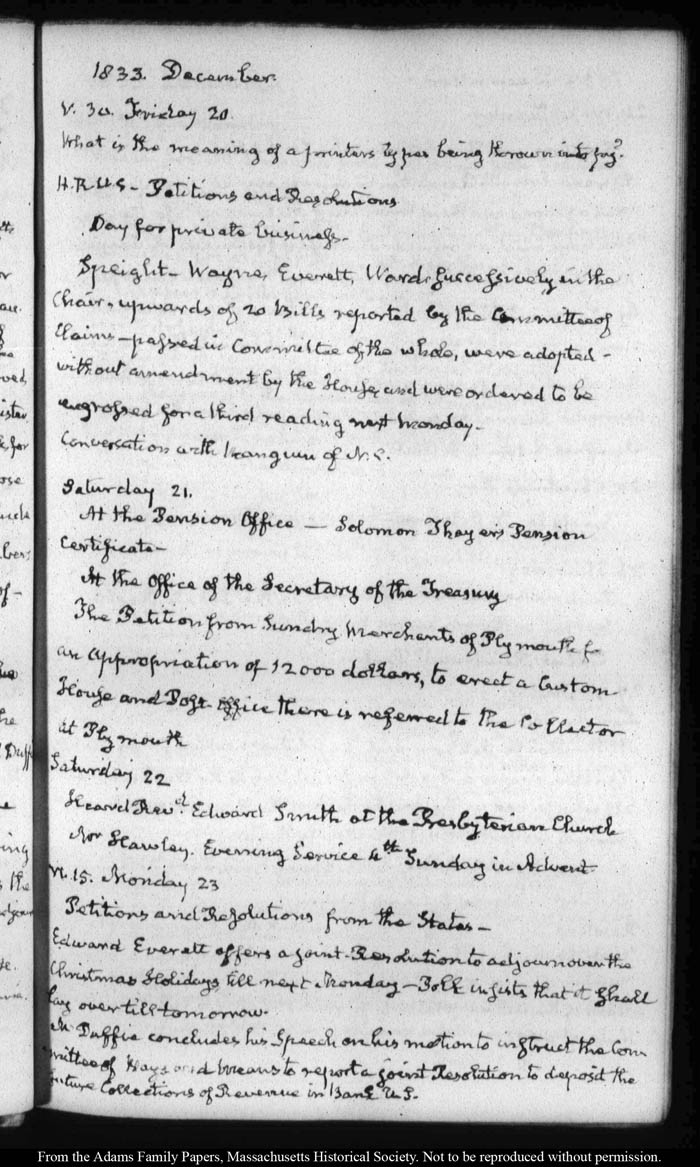 1833. December.
V. 30. Friday 20.
What is the meaning of a printers types being thrown into pye?
H.R.U.S - Petitions and Resolutions
Day for private business.
Speight - Wayne, Everett, Ward, successively in the
Chair, upwards of 20 Bills reported by the Committee of
Claims - passed in Committee of the whole, were adopted -
without amendment by the House, and were ordered to be
engrossed for a third reading next Monday -
Conversation with Mangum of N.C.
Saturday 21.
At the Pension Office — Solomon Thayer's Pension
Certificate -
At the Office of the Secretary of the Treasury
The Petition from Sundry Merchants of Plymouth for
an appropriation of 12000 dollars, to erect a Custom
House and Post office there is referred to the Collector
at Plymouth
Saturday 22
Heard Revd. Edward Smith at the Presbyterian Church
Mr Hawley. Evening Service 4th Sunday in Advent
15. Monday 23
Petitions and Resolutions from the States -
Edward Everett offers a joint Resolution to adjourn over the
Christmas Holidays, till next Monday - Polk insists that it shall
lay over till tomorrow.
McDuffie concludes his Speech on his motion to instruct the Com
mittee of Ways and Means to report a joint Resolution to deposit the
future Collections of Revenue in Bank U.S.
From the Adams Family Papers, Massachusetts Historical Society. Not to be reproduced without permission.